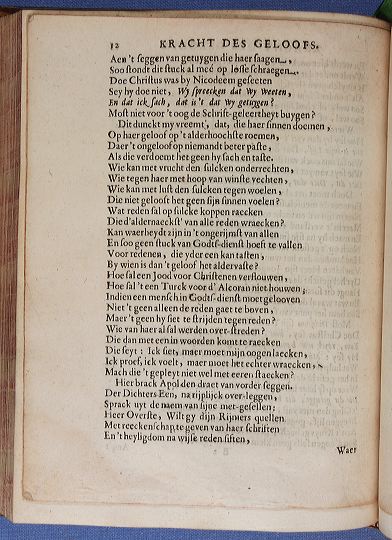 12 KRACHT DES GELOOFS.
Aen 't seggen van getuygen die haer saagen,
Soo stondt dit stuck al meé op losse schraegen.
Doe Christus was by Nicodeem geseeten
Sey hy doe niet, Wy spreecken dat wy weeten,
En dat ick sach, dat is 't dat wy getuygen?
Most niet voor 't oog de Schrift-geleertheyt buygen?
Dit dunckt my vreemt, dat, die haer sinnen doemen,
Op haer geloof op 't alderhoochste roemen,
Daer 't ongeloof op niemandt beter paste,
Als die verdoemt het geen hy sach en taste.
Wie kan met vrucht den sulcken onderrechten,
Wie tegen haer met hoop van winste vechten,
Wie kan met lust den sulcken tegen woelen,
Die niet gelooft het geen sijn sinnen voelen?
Wat reden sal op sulcke koppen raecken
Die d'aldernaeckst' van alle reden wraecken?
Kan waerheydt zijn in 't ongerijmst van allen
En soo geen stuck van Godts-dienst hoeft te vallen
Voor redenen, die yder een kan tasten,
By wien is dan 't geloof het aldervaste?
Hoe sal een Jood voor Christenen verflouwen,
Hoe sal 't een Turck voor d' Alcoran niet houwen;
Indien een mensch in Godts-dienst moet gelooven
Niet 't geen alleen de reden gaet te boven,
Maer 't geen hy siet te strijden tegen reden?
Wie van haer al sal werden over-streden?
Die dan met een in woorden komt te raecken
Die seyt: Ick siet, maer moet mijn oogen laecken,
Ick proef, ick voelt, maer moet het echter wraecken,
Mach die 't gepleyt niet wel met eeren staecken?
Hier brack Apol den draet van vorder seggen.
Der Dichters Een, na rijplijck over-leggen,
Sprack uyt de naem van sijne met-gesellen:
Heer Overste, Wilt gy dijn Rijmers quellen
Met reeckenschap te geven van haer schriften
En 't heyligdom na wijse reden siften,
Waer